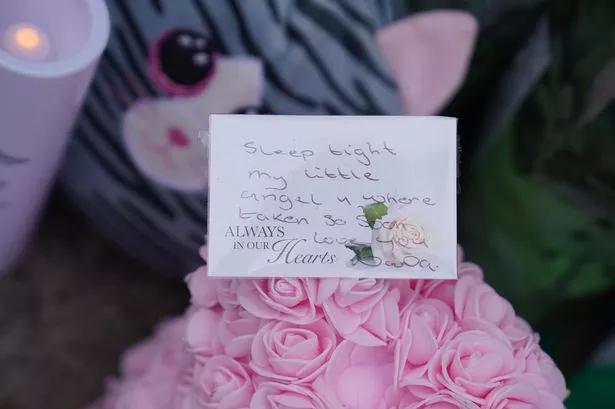 Sleep tight
my little
angel u where
taken so soon
love you
ALWAYS
IN OUR
Hearts